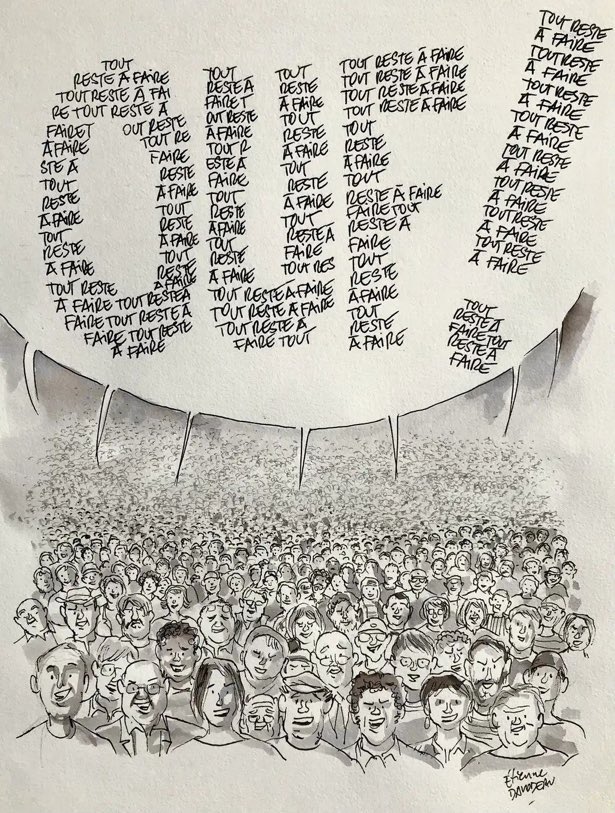 TOUT
RESTE À FAIRE
TOUT RESTE À FAI
RE TOUT RESTE À
FAIRE T
À FAIRE
STE À
TOUT
RESTE
À FAIRE
TOUT
RESTE
À FAIRE
OUT RESTE
TOUT RE
FAIRE
RESTE
À FAIRE
TOUT
RESTE
À FAIRE
TOUT
RESTE
À FAIRE
TOUT RESTE
À FAIRE TOUT RESTE À
FAIRE TOUT RESTE À
FAIRE TOUT RESTE
À FAIRE
TOUT
RESTE À
FAIRE T
OUT RESTE
À FAIRE
TOUT R
ESTE À
FAIRE
TOUT
RESTE
À FAIRE
TOUT
RESTE
À FAIRE
TOUT
RESTE
À FAIRE
TOUT
RESTE
À FAIRE
TOUT
RESTE
À FAIRE
TOUT
RESTE À
FAIRE
TOUT RES
TOUT RESTE À FAIRE
TOUT RESTE À FAIRE
TOUT RESTE À
FAIRE TOUT
TOUT RESTE À FAIRE
TOUT RESTE À FAIRE
TOUT RESTE À FAIRE
TOUT RESTE À FAIRE
TOUT
RESTE
À FAIRE
TOUT
RESTE À FAIRE
FAIRE TOUT
RESTE À
FAIRE
TOUT
RESTE
À FAIRE
TOUT
RESTE
À FAIRE
TOUT RESTE
À FAIRE
TOUT RESTE
À FAIRE
TOUT RESTE
À FAIRE
TOUT RESTE
À FAIRE
TOUT RESTE
À FAIRE
TOUT RESTE
À FAIRE
TOUT RESTE
À FAIRE
TOUT RESTE
À FAIRE
TOUT
RESTE À
FAIRE TOUT
RESTE À
FAIRE
Étienne
DAVODEAU